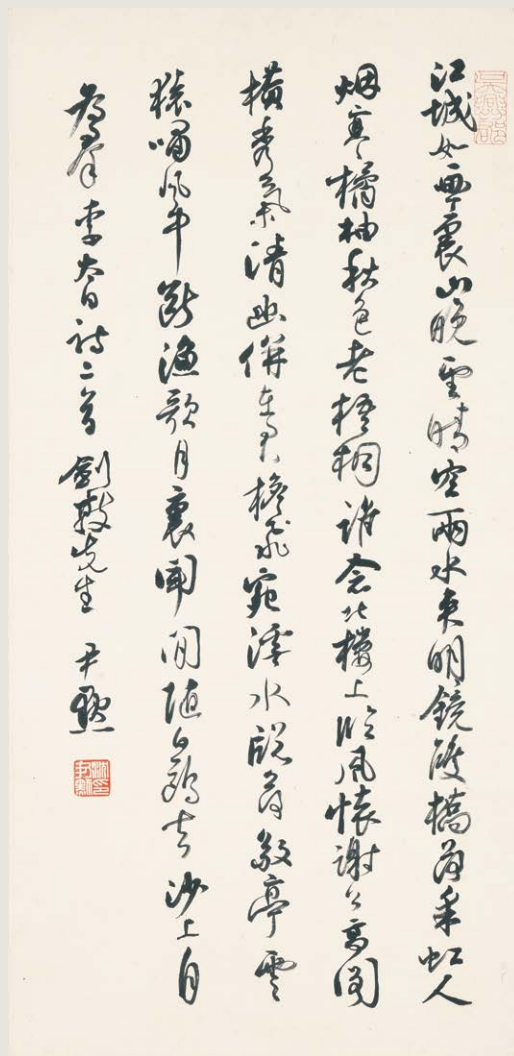 江城如畫裏山晚望晴空兩水夾明鏡雙橋落采虹人
烟寒橘柚秋色老梧桐誰念北樓上臨風懷謝公高閣
橫秀氣清幽併在君檐飛宛溪水牕落敬亭雲
猿嘯風中斷漁歌月裏聞閒隨白鷗去沙上自
為羣 李太白詩二首 劍先生 尹默
沈印尹默